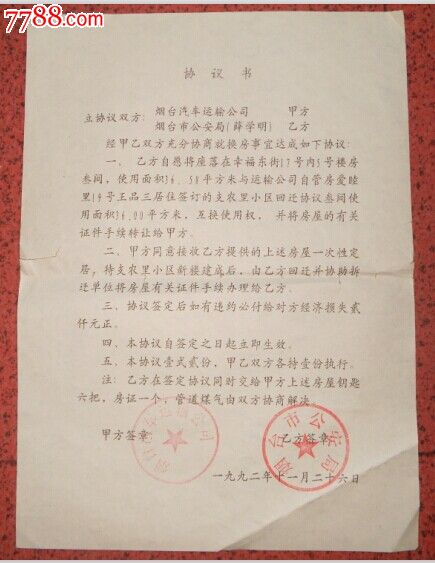 7788.com
协议书
立协议双方：烟台汽车运输公司 甲方
烟台市公安局(薛学明) 乙方
经甲乙双方充分协商就换房事宜达成如下协议：
一、乙方自愿将座落在幸福东街17号内5号楼房
叁间，使用面积36.58平方米与运输公司自管房爱睦
里19号王品三居住签订的支农里小区回迁协议叁间使
用面积36.00平方米，互换使用权，并将房屋的有关
证件手续转让给甲方。
二、甲方同意接收乙方提供的上述房屋一次性定
居，待支农里小区新楼建成后，由乙方回迁并协助拆
迁单位将房屋有关证件手续办理给乙方。
三、协议签定后如有违约必付给对方经济损失贰
仟元正。
四、本协议自签定之日起立即生效。
五、本协议壹式贰份，甲乙双方各持壹份执行。
注：乙方在签定协议同时交给甲方上述房屋钥匙
六把，房证一个，管道煤气由双方协商解决。
甲方签章 乙方签章
烟台汽车运输公司
烟台市公安局
一九九二年十一月二十六日